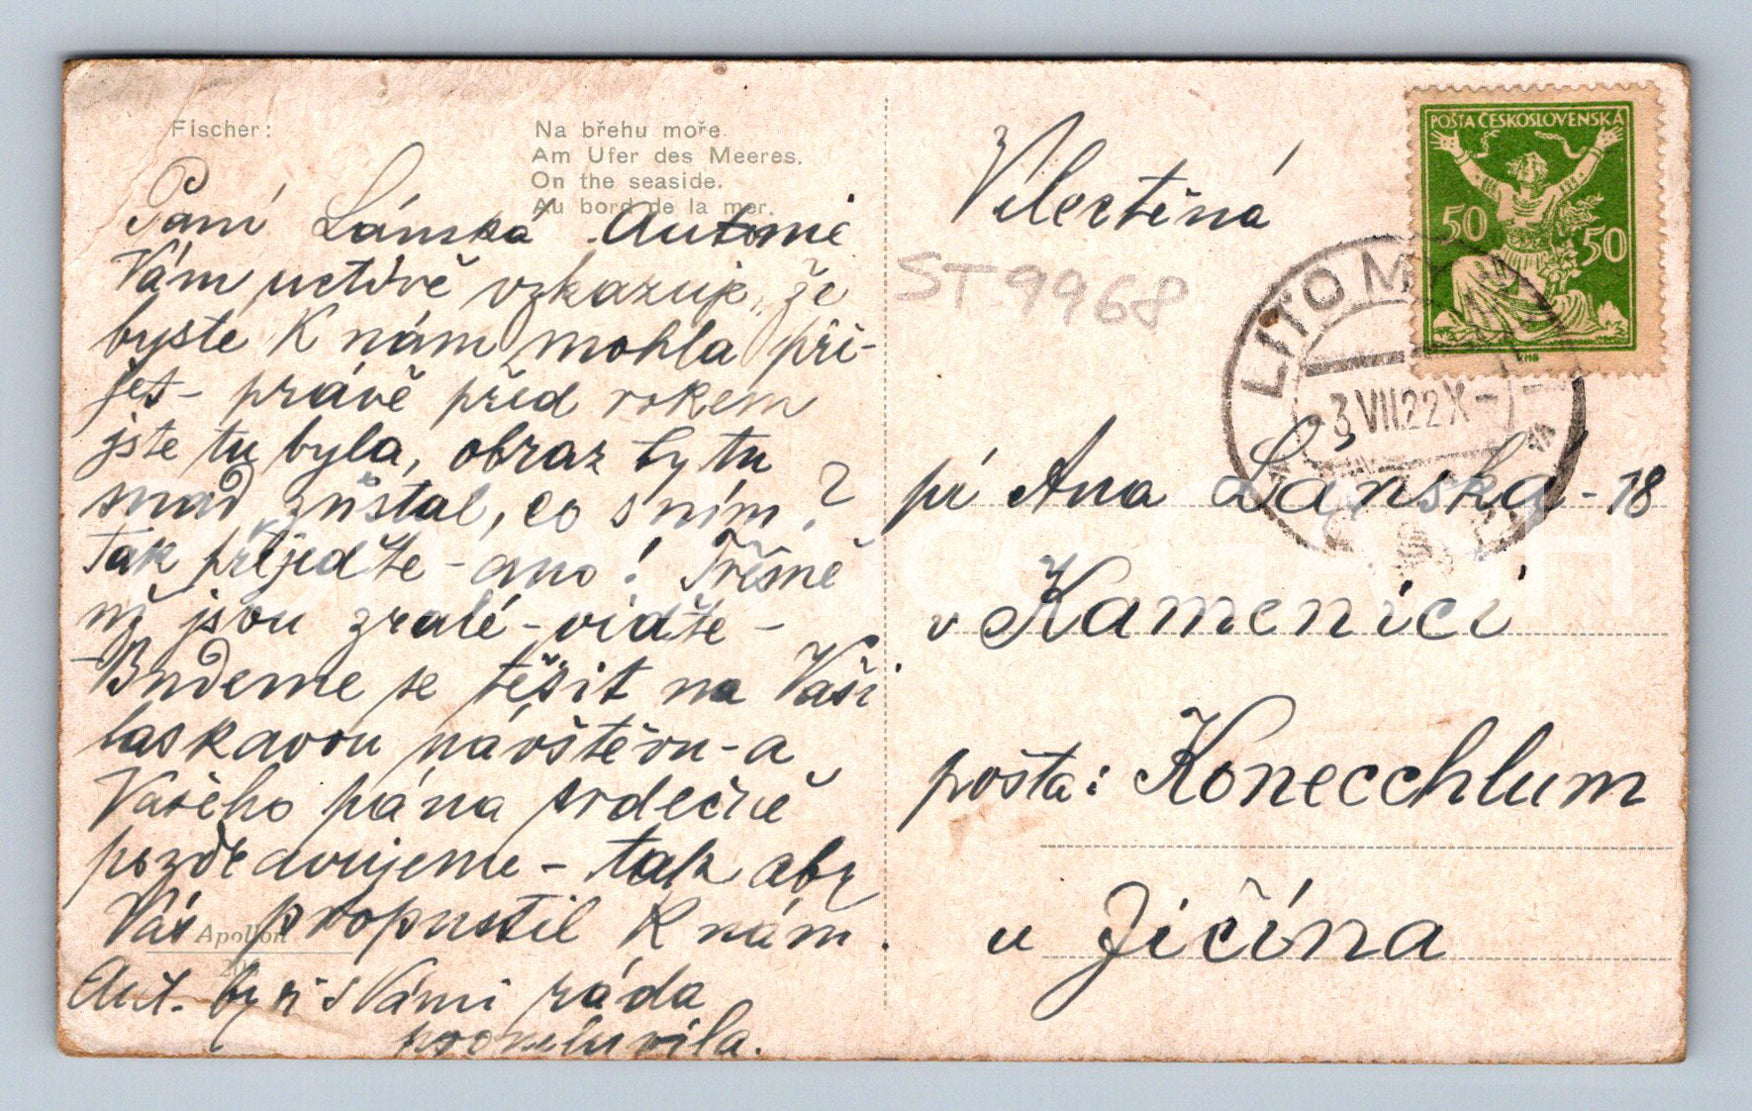 Fischer:
Na břehu moře.
Am Ufer des Meeres.
On the seaside.
Au bord de la mer.
Paní Lánská Antonie
Vám uctivě vzkazuje, že
byste K nám mohla při-
jet - právě před rokem
jste tu byla, obraz by tu
snad zůstal, co s ním?
Tak přijeďte - ano! Třešně
již jsou zralé - viďte -
- Budeme se těšit na Vaši
laskavou návštěvu - a
Vašeho pána srdečně
pozdravujeme - tak aby
Vás propustil K nám.
Ant. by ji s Vámi ráda
promluvila.
Apollon
Velectěná
ST 9968
POŠTA ČESKOSLOVENSKÁ
50 50
LITOM
-3 VII 22 X-
pí Ana Lánská - 18
v Kamenici
pošta: Konecchlum
u Jičína